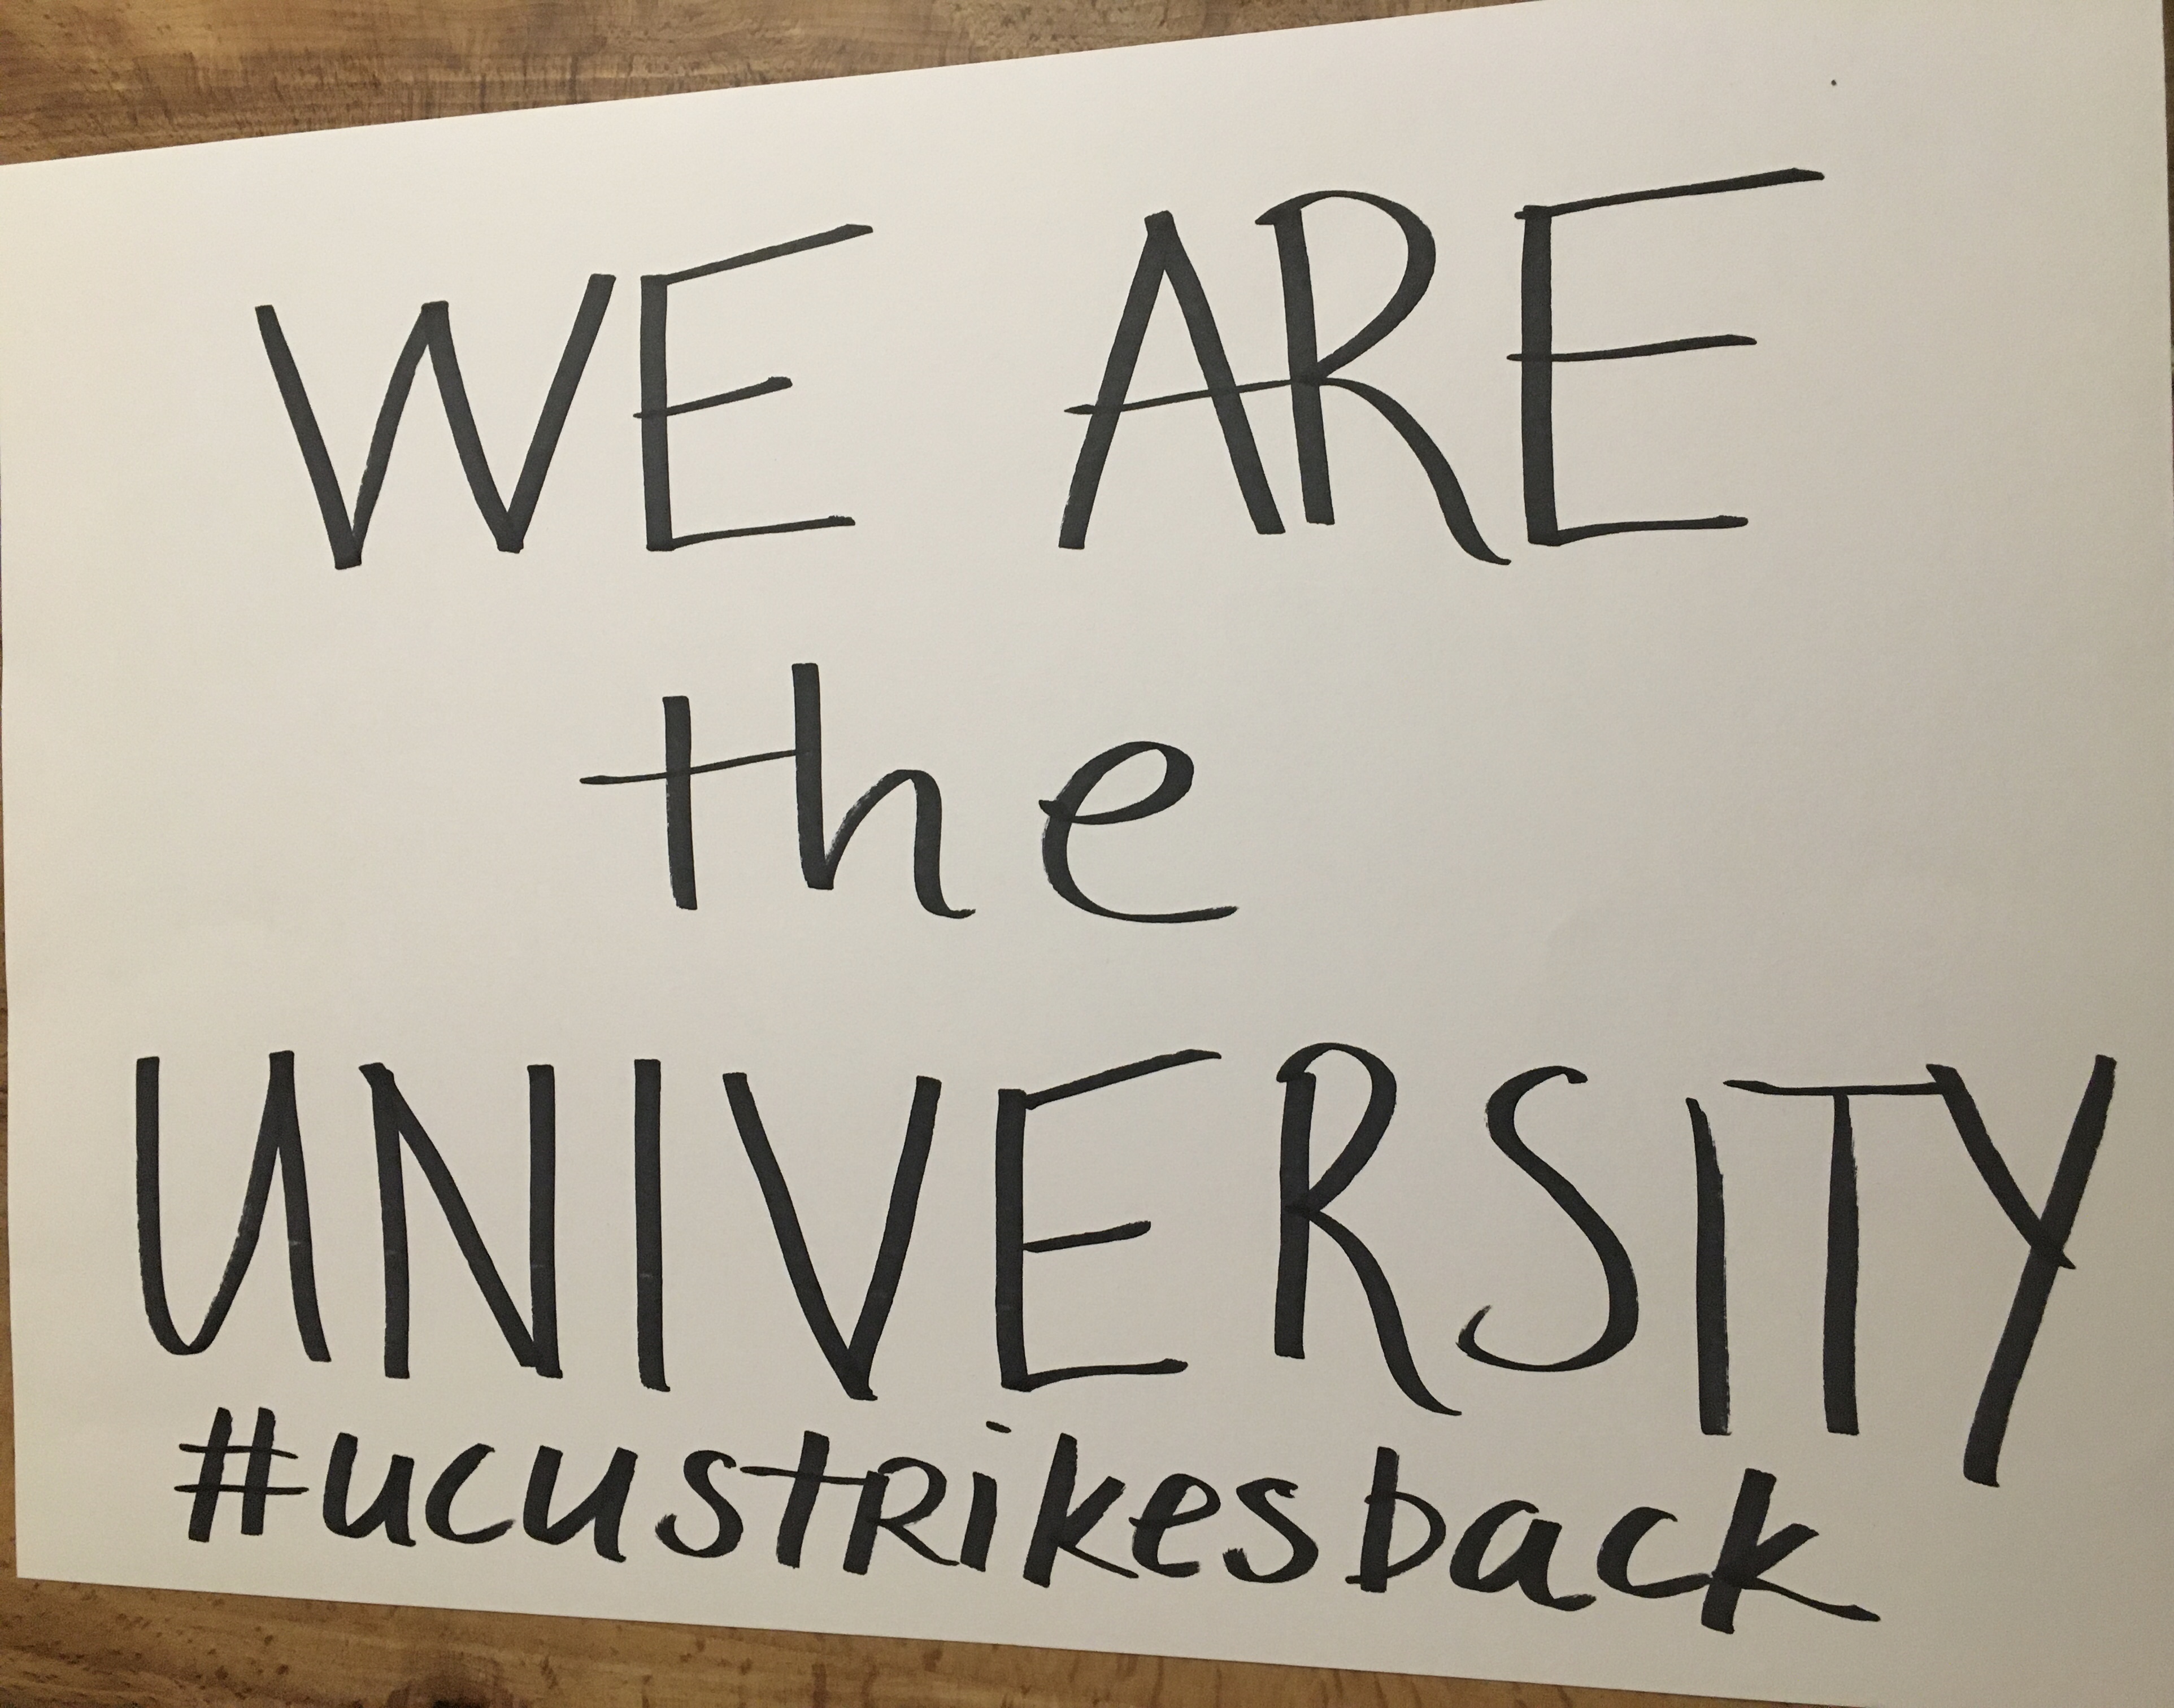 WE ARE
the
UNIVERSITY
#ucustrikesback